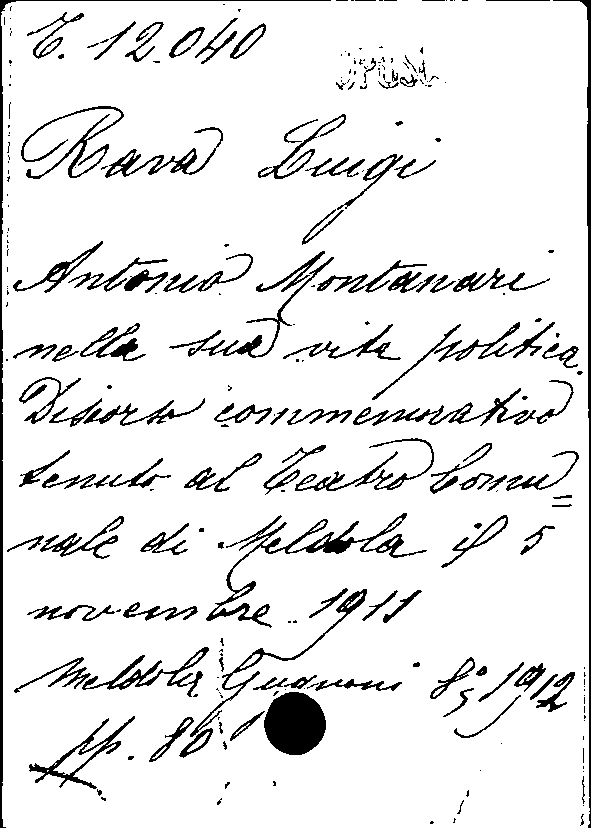 T. 12.040
OPUSC.
Ravà Luigi
Antonio Montanari
nella sua vita politica.
Discorso commemorativo
tenuto al Teatro Comu=
nale di Meldola il 5
novembre 1911
Meldola 8° 1912
pp. 80